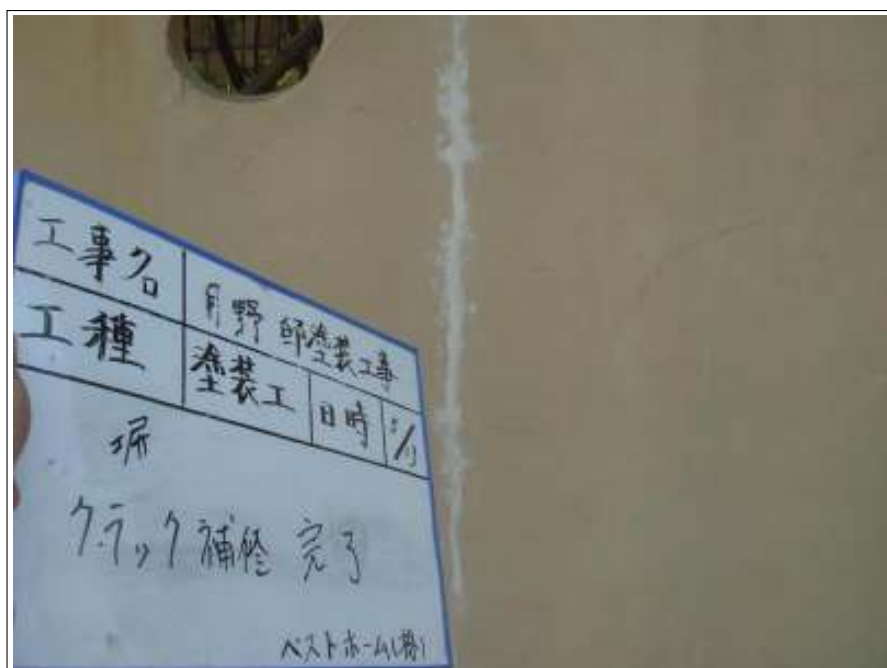 工事名 月野邸塗装工事
工種 塗装工 日時
塀
クラック補修 完了
ベストホーム(株)